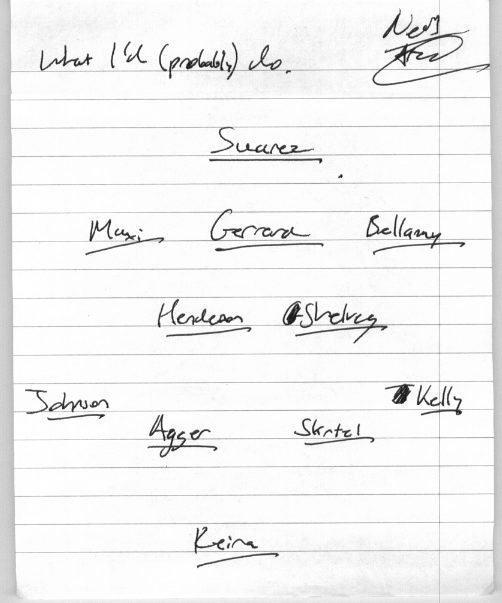 What I'd (probably) do.
Suarez
Maxi Gerrard Bellamy
Henderson Shelvey
Johnson Kelly
Agger Skrtel
Reina